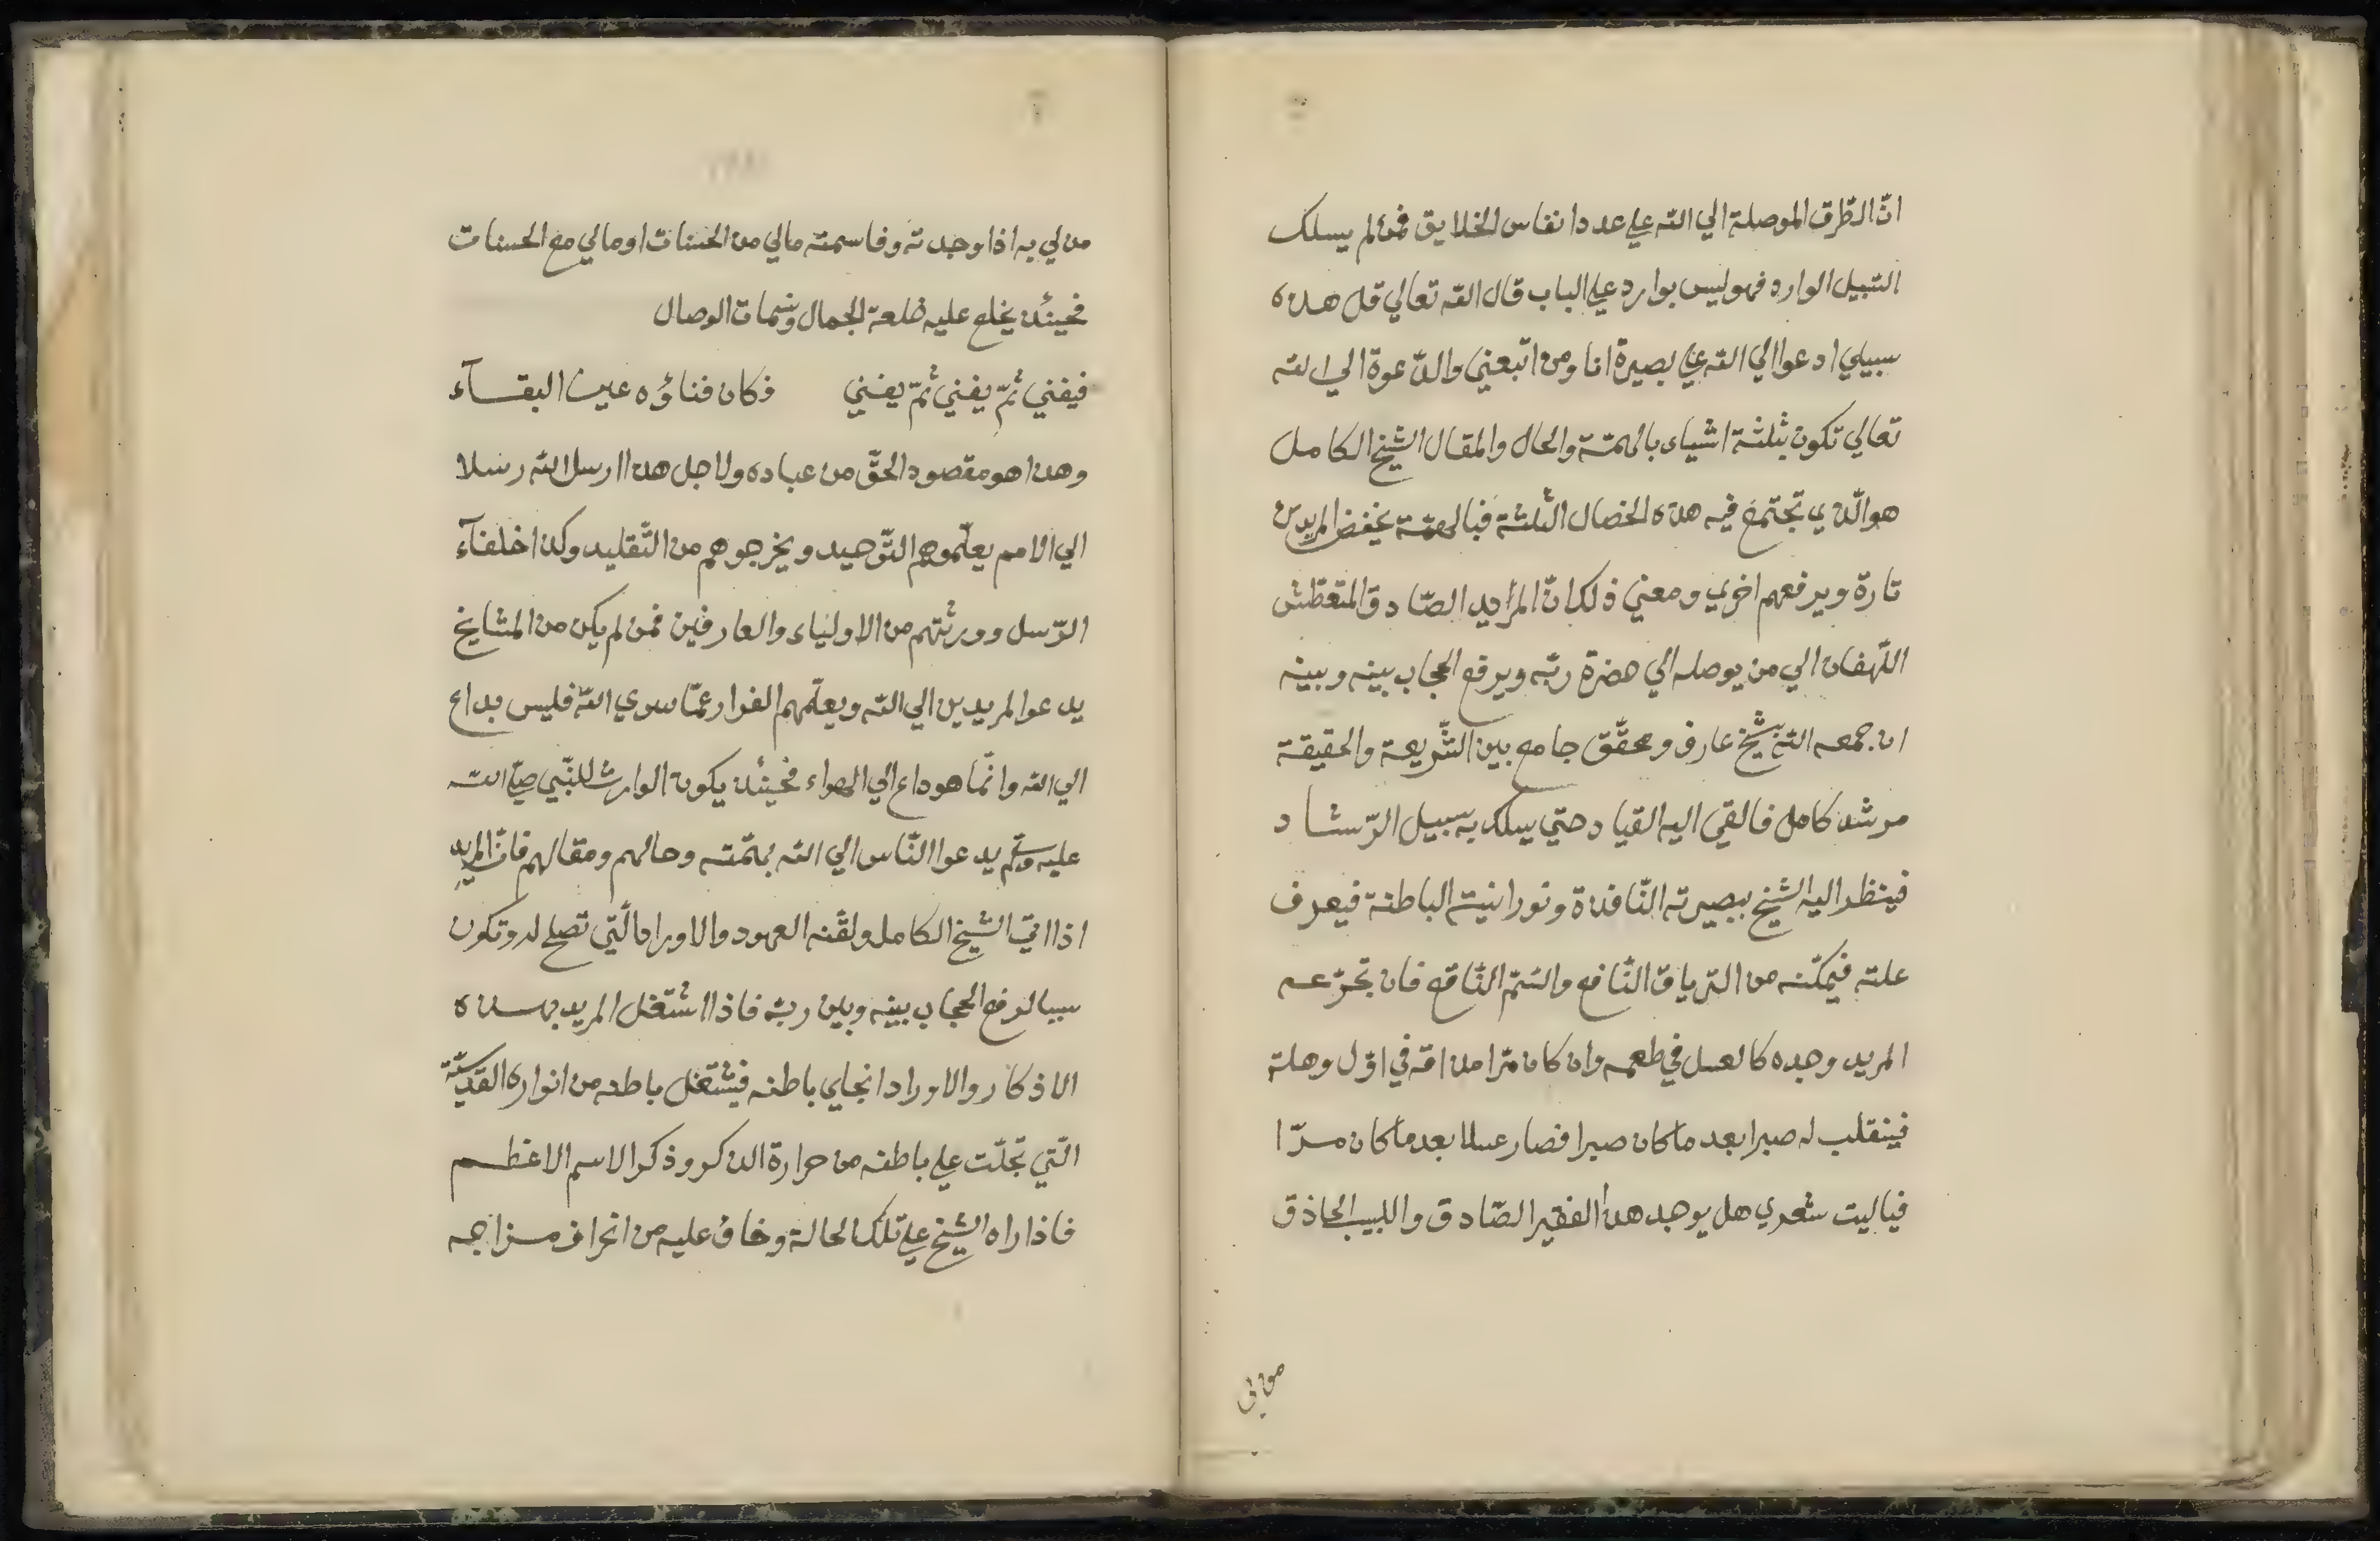 انّ الطّرق الموصلة الي الله علي عدد انفاس الخلايق فمن لم يسلك
السّبيل الوارد فهو ليس بوارد علي الباب قال الله تعالي قل هذه
سبيلي ادعوا الي الله علي بصيرة انا ومن اتّبعني والدّعوة الي الله
تعالي تكون بثلثة اشياء بالهمّة والحال والمقال الشيخ الكامل
هو الّذي تجتمع فيه هذه الخصال الثّلثة فبالهمّة يخفض المريدين
تارة ويرفعهم اخري ومعني ذلك انّ المريد الصّادق المتعطّش
اللّهفان الي من يوصله الي حضرة ربّه ويرفع الحجاب بينه وبينه
ان جمعه الله بشيخ عارف ومحقّق جامع بين الشّريعة والحقيقة
مرشد كامل فالقي اليه القياد حتي يسلك به سبيل الرّشاد
فينظر اليه الشيخ ببصيرته النّافذة ونورانيته الباطنة فيعرف
علته فيمكّنه من الترياق النّافع والسّمّ النّاقع فان تجرّعه
المريد وجده كالعسل في طعمه وان كان مرّا مذاقه في اوّل وهلة
فينقلب له صبرا بعد ما كان صبرا فصار عسلا بعد ما كان مرّا
فياليت شعري هل يوجد هذا الفقير الصّادق واللبيب الحاذق
من لي به اذا وجدته وقاسمته مالي من الحسنات او مالي مع الحسنات
فحينئذ يخلع عليه خلعة الجمال ونسمات الوصال
فيفني ثمّ يفني ثمّ يفني فكان فناؤه عين البقآء
وهذا هو مقصود الحقّ من عباده ولاجل هذا ارسل الله رسلا
الي الامم يعلّموهم التّوحيد ويخرجوهم من التّقليد وكذا خلفآء
الرّسل وورثتهم من الاولياء والعارفين فمن لم يكن من المشايخ
يدعو المريدين الي الله ويعلّمهم الفرار عمّا سوي الله فليس بداع
الي الله وانّما هو داع الي الهواء فحينئذ يكون الوارث للنّبي صلي الله
عليه وسلم يدعوا النّاس الي الله بهمّته وحالهم ومقالهم فانّ المريد
اذا اتي الشّيخ الكامل ولقّنه العهود والاوراد الّتي تصلح له وتكون
سببا لرفع الحجاب بينه وبين ربّه فاذا اشتغل المريد بهذه
الاذكار والاوراد انجلي باطنه فيشتعل باطنه من انواره القدسيّة
الّتي تجلّت علي باطنه من حرارة الذكر وذكر الاسم الاعظم
فاذا راه الشيخ علي تلك الحالة وخاف عليه من انحراف مزاجه